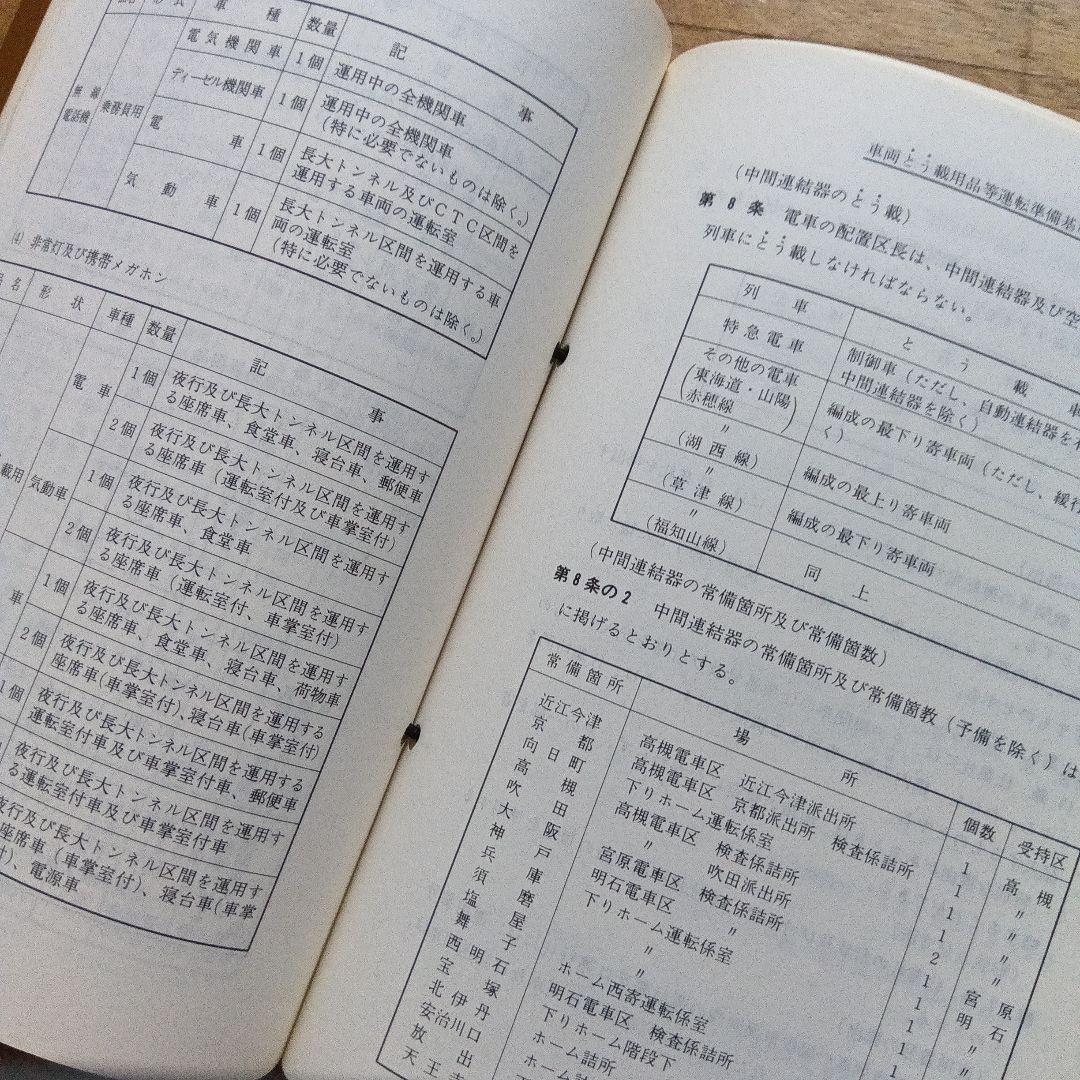 形式 車種 数量 記事
無線電話機 乗務員用
電気機関車 1個 運用中の全機関車
ディーゼル機関車 1個 運用中の全機関車
(特に必要でないものは除く。)
電車 1個 長大トンネル及びCTC区間を
運用する車両の運転室
気動車 1個 長大トンネル区間を運用する車
両の運転室
(特に必要でないものは除く。)
(4) 非常灯及び携帯メガホン
名 形状 車種 数量 記事
載用
電車 1個 夜行及び長大トンネル区間を運用す
る座席車、食堂車、寝台車、郵便車
2個 夜行及び長大トンネル区間を運用す
る座席車(運転室付及び車掌室付)
気動車 1個 夜行及び長大トンネル区間を運用す
る座席車、食堂車
2個 夜行及び長大トンネル区間を運用す
る座席車(運転室付、車掌室付)
車 1個 夜行及び長大トンネル区間を運用す
る座席車、食堂車、寝台車、荷物車
2個 夜行及び長大トンネル区間を運用する
座席車(車掌室付)、寝台車(車掌室付)
1個 夜行及び長大トンネル区間を運用する
運転室付車及び車掌室付車、郵便車
夜行及び長大トンネル区間を運用す
る運転室付車及び車掌室付車
夜行及び長大トンネル区間を運用す
座席車(車掌室付)、寝台車(車掌
、電源車
車両とう載用品等運転準備基
(中間連結器のとう載)
第8条 電車の配置区長は、中間連結器及び空
列車にとう載しなければならない。
列車 とう載車
特急電車 制御車(ただし、自動連結器を
中間連結器を除く)
その他の電車
(東海道・山陽)
赤穂線
編成の最下り寄車両(ただし、緩行
く)
〃
(湖西線) 編成の最上り寄車両
〃
(草津線) 編成の最下り寄車両
〃
(福知山線) 同上
(中間連結器の常備箇所及び常備箇数)
第8条の2 中間連結器の常備箇所及び常備箇数(予備を除く)は
に掲げるとおりとする。
常備箇所 場所 個数 受持区
近江今津 高槻電車区 近江今津派出所 1 高槻
京都 高槻電車区 京都派出所 検査係詰所 1 〃
向日町 下りホーム運転係室 1 〃
高槻 高槻電車区 検査係詰所 2 〃
吹田 〃 吹田派出所 1
大阪 宮原電車区 検査係詰所 1 宮原
神戸 明石電車区 検査係詰所 1 明石
兵庫 下りホーム運転係室 1 〃
須磨 〃
塩屋 〃
舞子 ホーム西寄運転係室
西明石 明石電車区 検査係詰所
宝塚 下りホーム階段下
北伊丹 ホーム詰所
安治川口
放出
天王